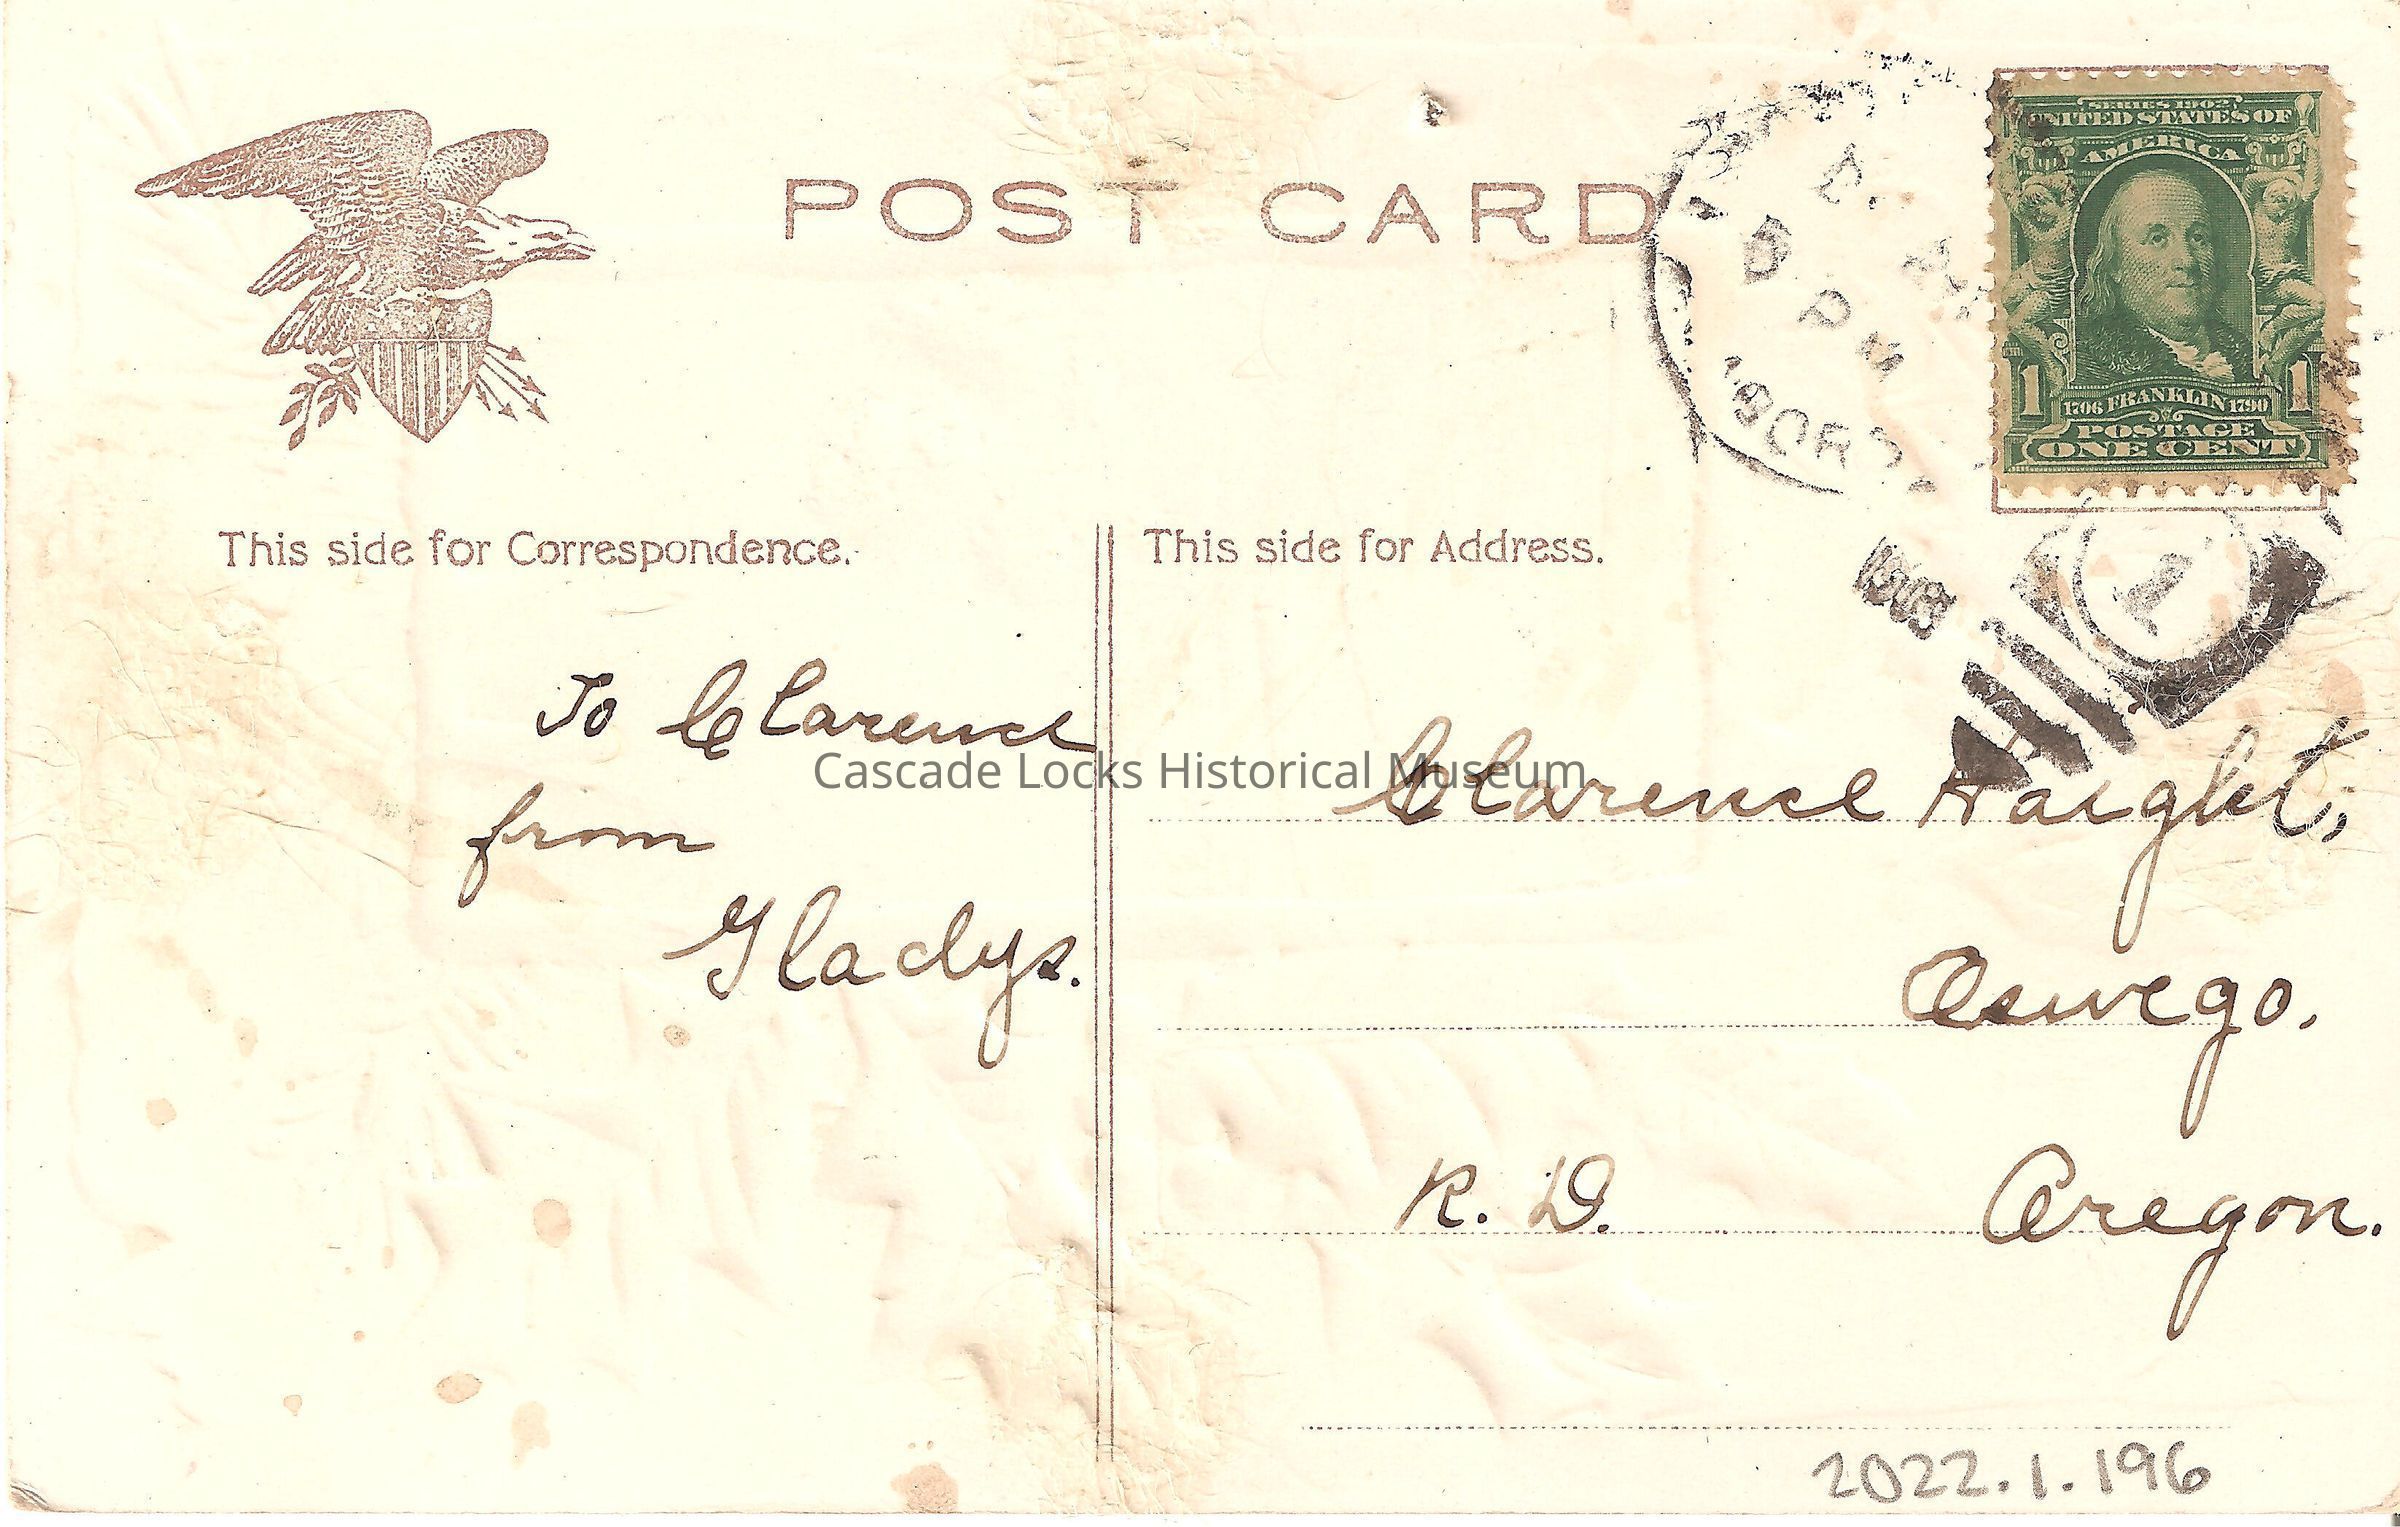 POST CARD
5 PM
SERIES 1902
UNITED STATES OF
AMERICA
1 1706 FRANKLIN 1790 1
POSTAGE
ONE CENT
This side for Correspondence.
This side for Address.
To Clarence
from
Gladys.
Cascade Locks Historical Museum
Clarence Haight,
Oswego.
R. D. Oregon.
2022.1.196